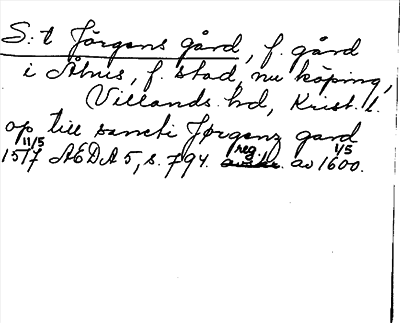 S:t Jörgens gård, f. gård
i Åhus, f. stad, nu köping,
Villands hd, Krist. l.
op till sancti Jørgenz gard
11/5 1517 AEDA 5, s. 794. reg. av 1/5 1600.